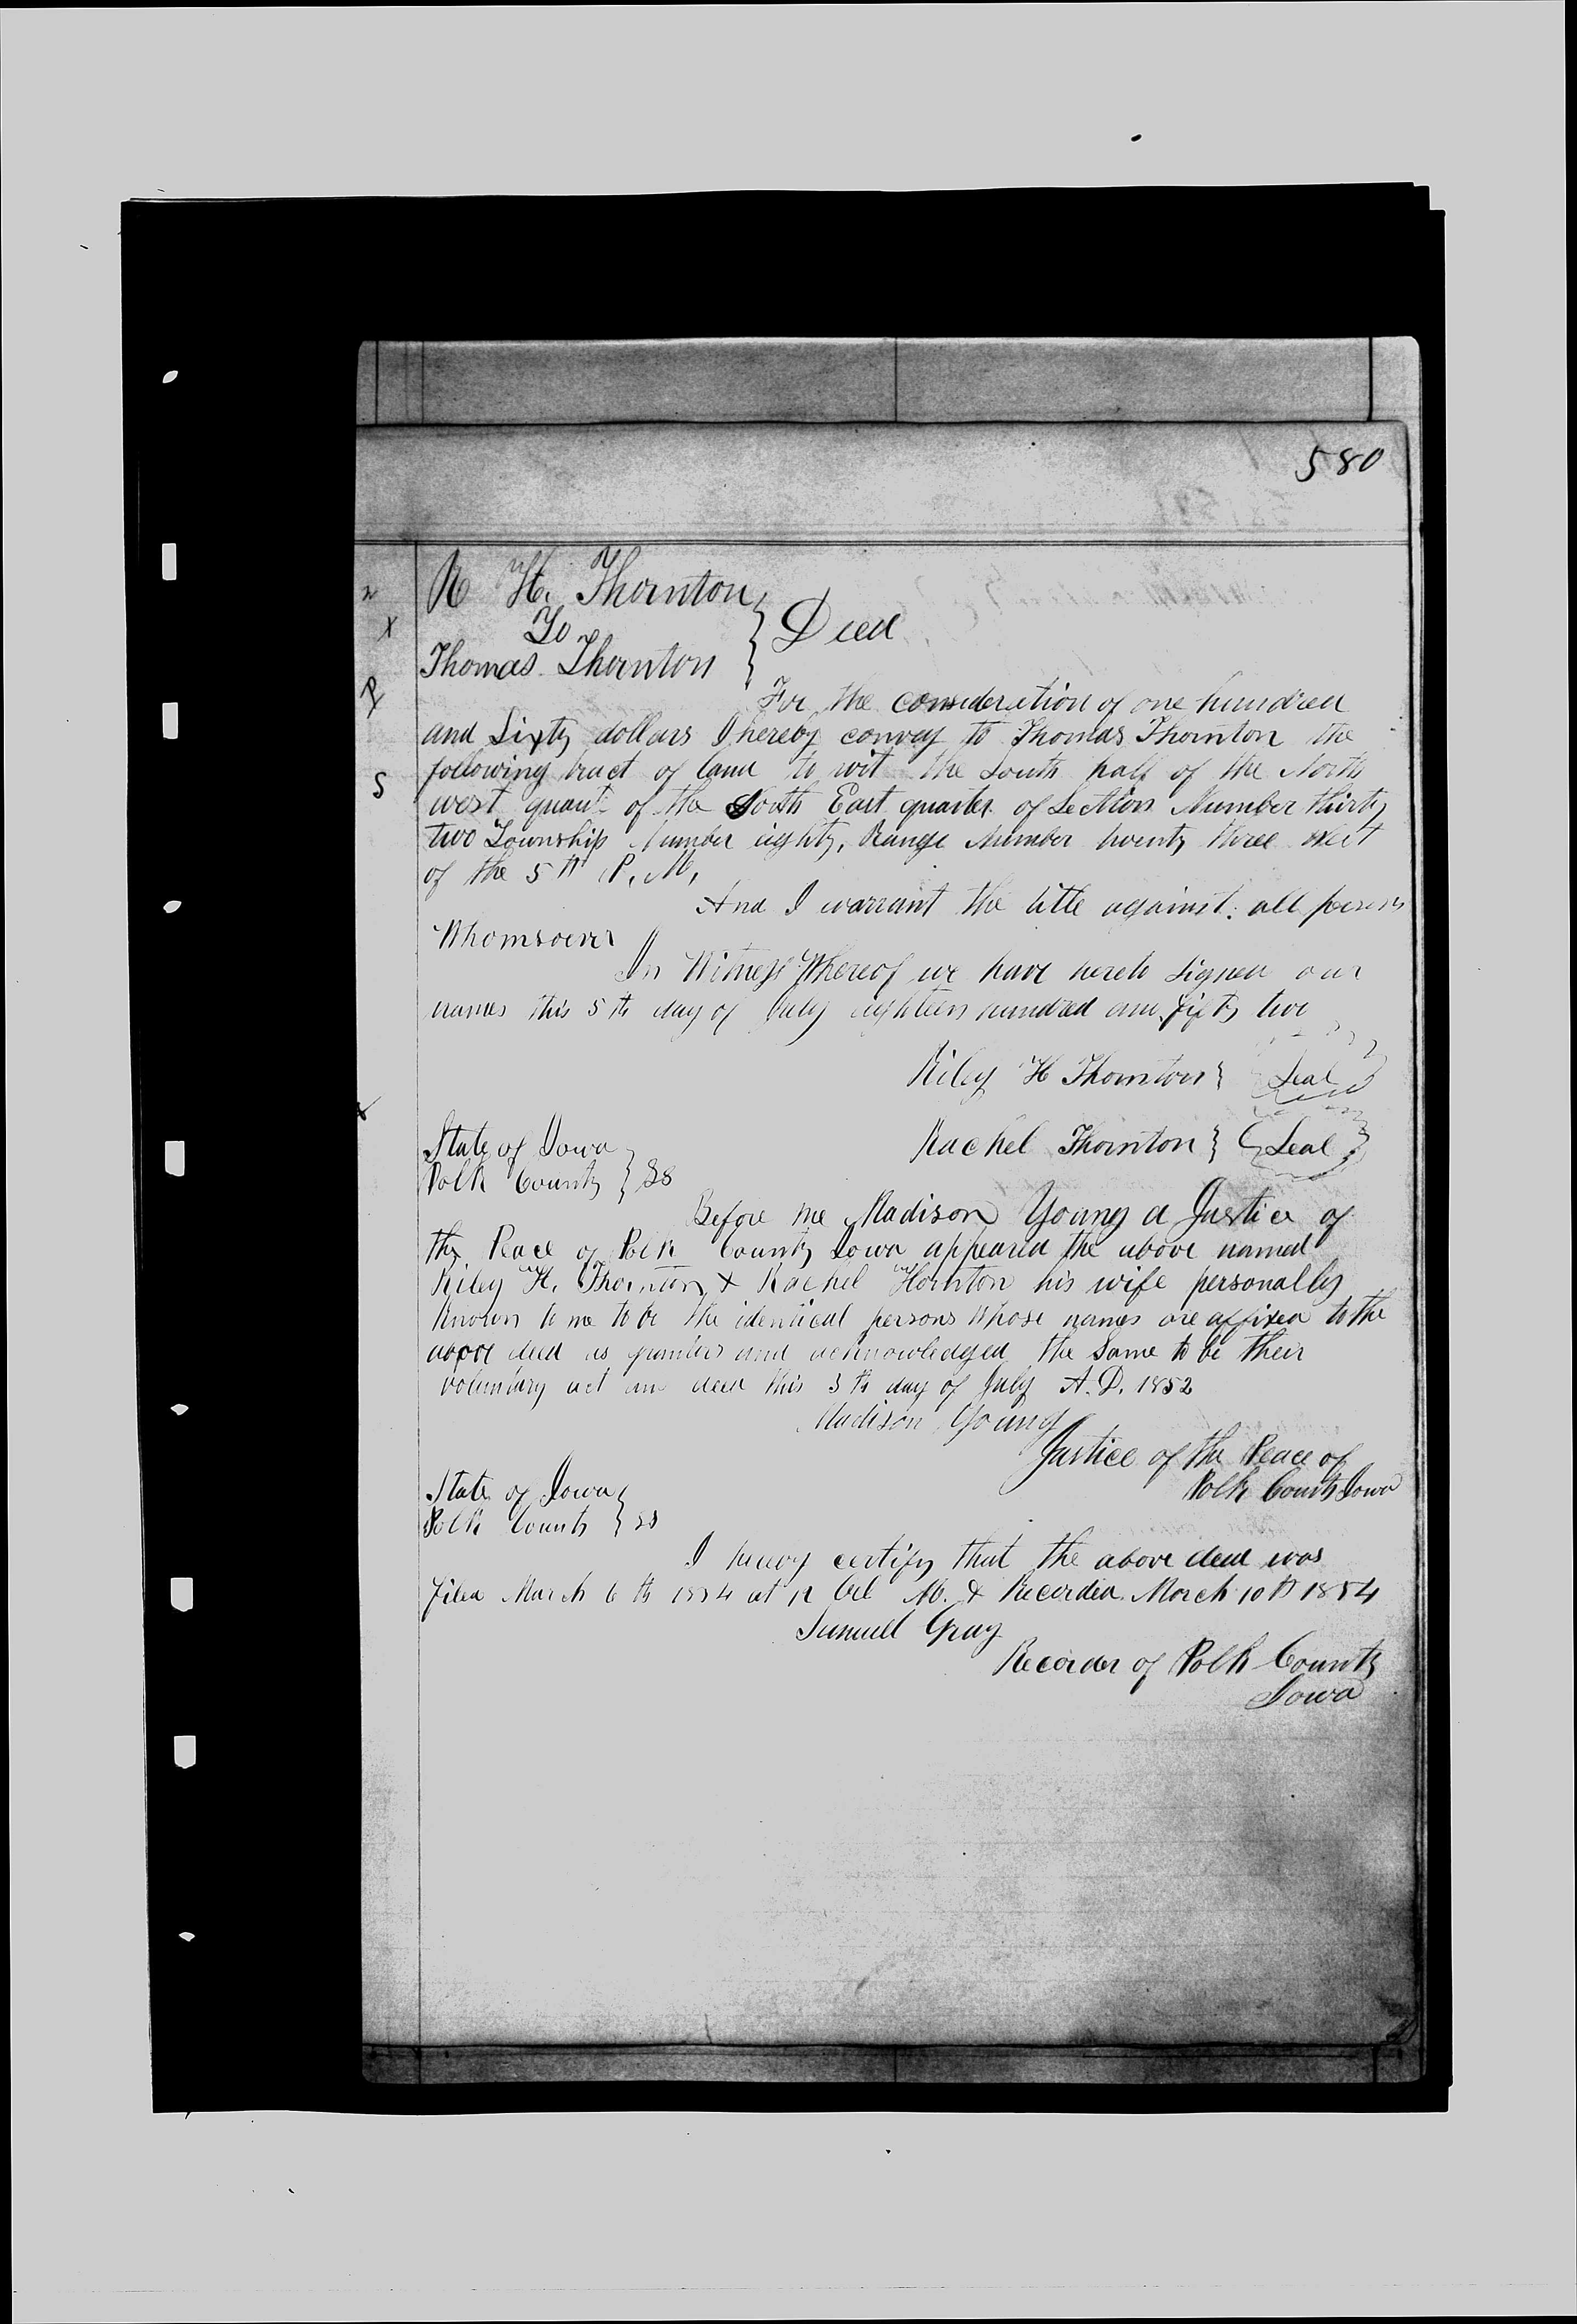 580
R H. Thornton
To
Thomas Thornton } Deed
For the consideration of one hundred
and Sixty dollars I hereby convey to Thomas Thornton the
following tract of land to wit the South half of the North
west quart of the South East quarter of Section Number thirty
two Township Number eighty, Range Number twenty three West
of the 5th P. M,
And I warrant the title against all persons
Whomsoever
In Witness Whereof we have hereto Signed our
names this 5th day of July eighteen hundred and fifty two
Riley H Thornton } Seal
Rachel Thornton } { Seal }
State of Iowa
Polk County } SS
Before me Madison Young a Justice of
the Peace of Polk County Iowa appeared the above named
Riley H. Thornton & Rachel Thornton his wife personally
Known to me to be the identical persons Whose names are affixed to the
above deed as grantors and acknowledged the Same to be their
voluntary act and deed this 5th day of July A. D. 1852
Madison Young
Justice of the Peace of
Polk County Iowa
State of Iowa
Polk County } SS
I hereby certify that the above deed was
filed March 6th 1854 at 12 Ocl M. & Recorded March 10th 1854
Samuel Gray
Recorder of Polk County
Iowa